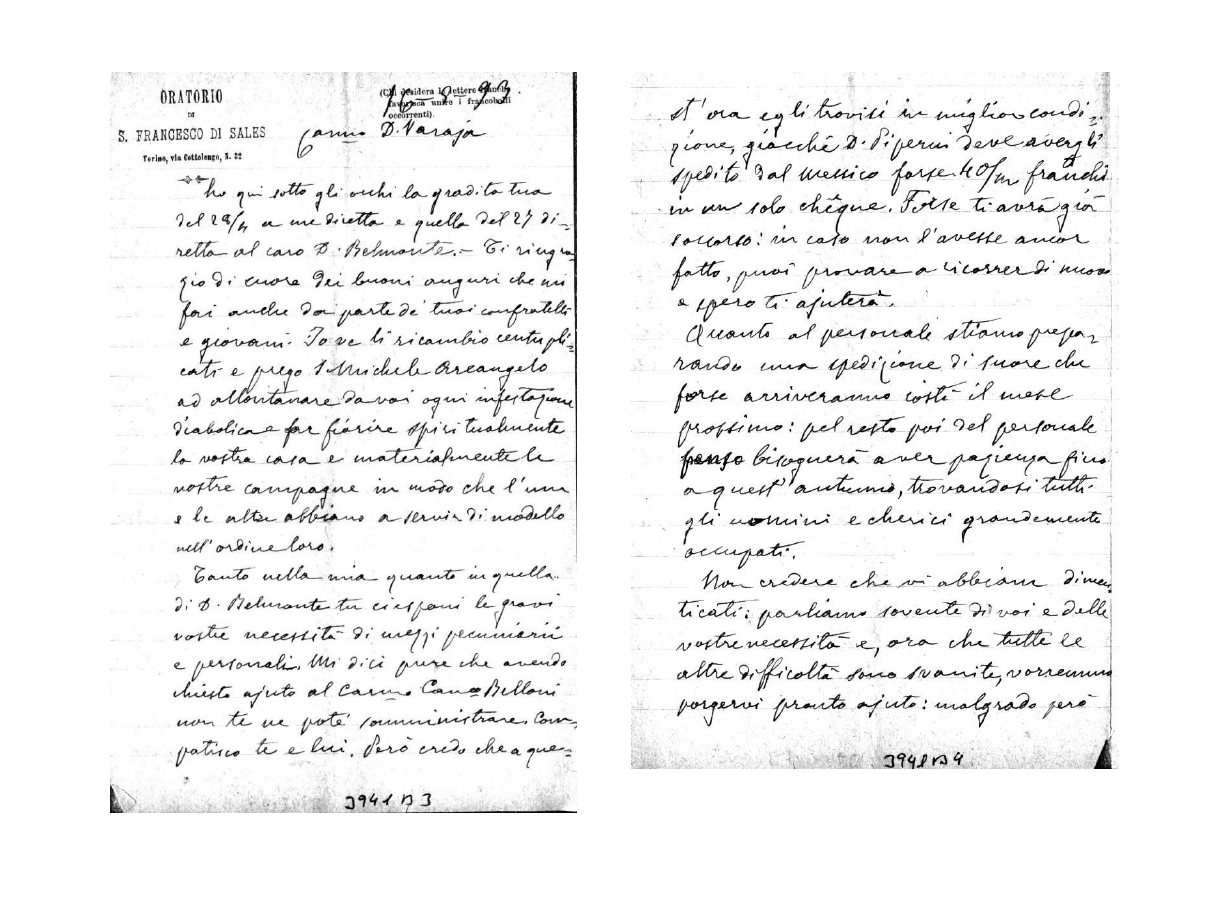 ORATORIO
DI
S. FRANCESCO DI SALES
Torino, via Cottolengo, N. 32
(Chi desidera lettere
favorisca unire i francobolli
occorrenti).
10-8-93.
Carmo D. Varaja
Ho qui sotto gli occhi la gradita tua
del 28/4 a me diretta e quella del 27 di-
retta al caro D. Belmonte. - Ti ringra
zio di cuore dei buoni auguri che mi
fai anche da parte de' tuoi confratelli
e giovani. Io ve li ricambio centupli-
cati e prego S. Michele Arcangelo
ad allontanare da voi ogni infestazione
diabolica e far fiorire spiritualmente
la vostra casa e materialmente le
vostre campagne in modo che l'una
e le altre abbiano a servir di modello
nell'ordine loro.
Tanto nella mia quanto in quella
di D. Belmonte tu ci esponi le gravi
vostre necessità di mezzi pecuniarii
e personali. Mi dici pure che avendo
chiesto ajuto al Carmo Canco Belloni
non te ne poté somministrare. Com-
patisco te e lui. Però credo che a que-
3941 B 3
st'ora egli trovisi in miglior condi-
zione, giacchè D. Piperni deve avergli
spedito dal Messico forse 40/m franchi
in un solo chêque. Forse ti avrà già
soccorso: in caso non l'avesse ancor
fatto, puoi provare a ricorrer di nuovo
e spero ti ajuterà.
Quanto al personale stiamo prepa-
rando una spedizione di suore che
forse arriveranno costì il mese
prossimo: pel resto poi del personale
penso bisognerà aver pazienza fino
a quest'autunno, trovandosi tutti
gli uomini e cherici grandemente
occupati.
Non credere che vi abbiam dimen
ticati: parliamo sovente di voi e delle
vostre necessità e, ora che tutte le
altre difficoltà sono svanite, vorremmo
porgervi pronto ajuto: malgrado però
3941 B 4